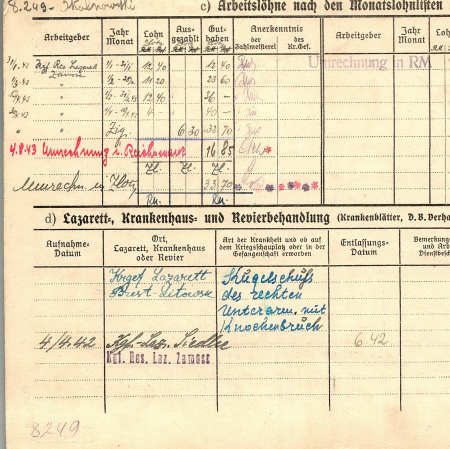 8.249
c) Arbeitslöhne nach den Monatslohnlisten
Arbeitgeber
Jahr Monat
Lohn
Ausgezahlt
Guthaben
Anerkenntnis
der Zahlmeisterei
des Kr.Gef.
Arbeitgeber
Jahr Monat
Umrechnung in RM
12 40
11 20
23 60
12 40
36 —
4 —
40 —
6 30
33 70
4.8.43 Umrechnung i. Reichsmark
16 85
Zl. Zl. Zl.
33 70
Rm. Rm.
d) Lazarett-, Krankenhaus- und Revierbehandlung (Krankenblätter, D.B. Verha
Aufnahme-Datum
Ort, Lazarett, Krankenhaus oder Revier
Art der Krankheit und ob auf dem Kriegsschauplatz oder in der Gefangenschaft erworben
Entlassungs-Datum
Bemerkung
und Art
Dienstbesch
Krgef Lazarett
Brest Litowsk
Kugelschuß
des rechten
Unterarm. mit
Knochenbruch
4/4.42
Kgf.-Laz. Siedlce
6.42
Kgf. Res. Laz. Zamosc
8249